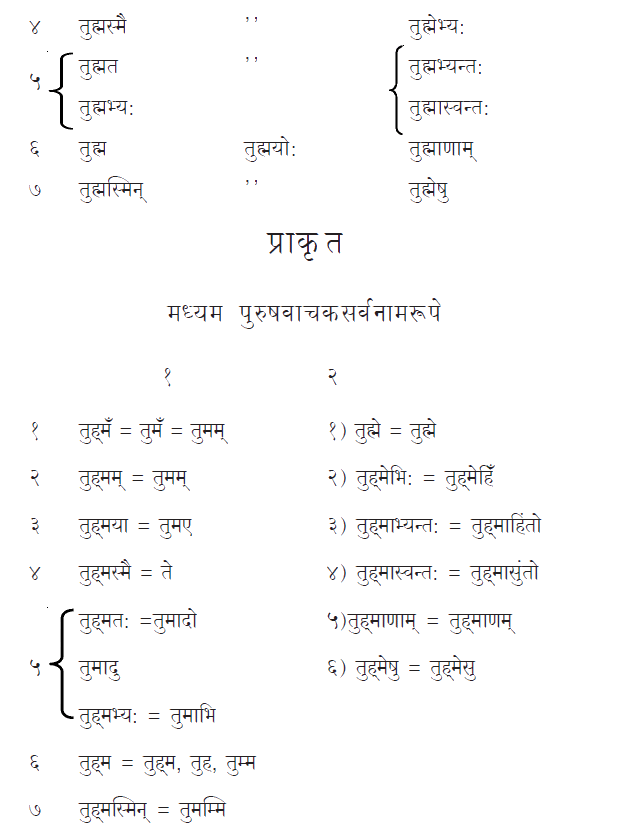 ४ तुह्मस्मै ’’ तुह्मेभ्य:
५ तुह्मत ’’ तुह्मभ्यन्त:
तुह्मभ्य: तुह्मास्वन्त:
६ तुह्म तुह्मयो: तुह्माणाम्
७ तुह्मस्मिन् ’’ तुह्मेषु
प्राकृत
मध्यम पुरुषवाचकसर्वनामरूपे
१ २
१ तुह्‌मँ = तुमँ = तुमम् १) तुह्मे = तुह्मे
२ तुह्‌मम् = तुमम् २) तुह्‌मेभि: = तुह्‌मेहिँ
३ तुह्‌मया = तुमए ३) तुह्‌माभ्यन्त: = तुह्‌माहिंतो
४ तुह्‌मस्मै = ते ४) तुह्‌मास्वन्त: = तुह्‌मासुंतो
तुह्‌मत: =तुमादो ५)तुह्‌माणाम् = तुह्‌माणम्
५ तुमादु ६) तुह्‌मेषु = तुह्‌मेसु
तुह्‌मभ्य: = तुमाभि
६ तुह्‌म = तुह्‌म, तुह, तुम्म
७ तुह्‌मस्मिन् = तुमम्मि